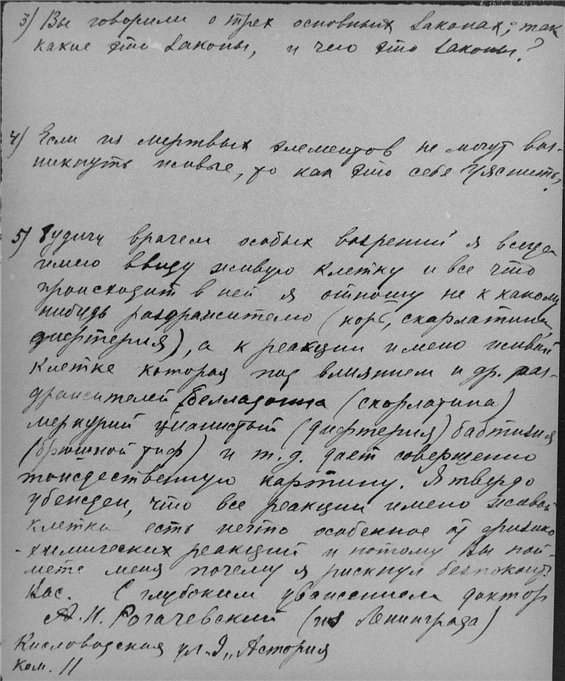 3) Вы говорили о трех основных законах; так
какие это законы, и чего это законы?
4) Если из мертвых элементов не могут воз-
никнуть живые, то как это себе уяснить?
5) Будучи врачем особых воззрений я всегда
имею ввиду живую клетку и все что
происходит в ней я отношу не к какому
нибудь раздражителю (корь, скарлатина,
дифтерия), а к реакции имено живой
клетке которая под влиянием и др. раз-
дражителей Белладонна (скорлатина)
меркурий цианистый (дифтерия) баптизия
(брюшной тиф) и т.д. дает совершенно
тождественную картину. Я твердо
убежден, что все реакции имено живой
клетки есть нечто особенное от физико
-химических реакций и потому Вы пой-
мете меня почему я рискнул безпокоить
Вас. С глубоким уважением доктор
А.И. Рогачевский (из Ленинграда)
Кисловодская ул. "Астория
ком. 11